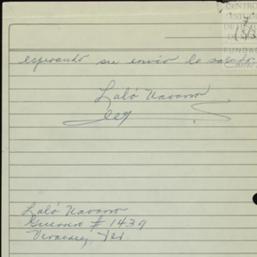 CENTRO
esperando su envio lo saludo
Laló Navarro
Laló Navarro
Guerrero # 1439
Veracruz, Ver